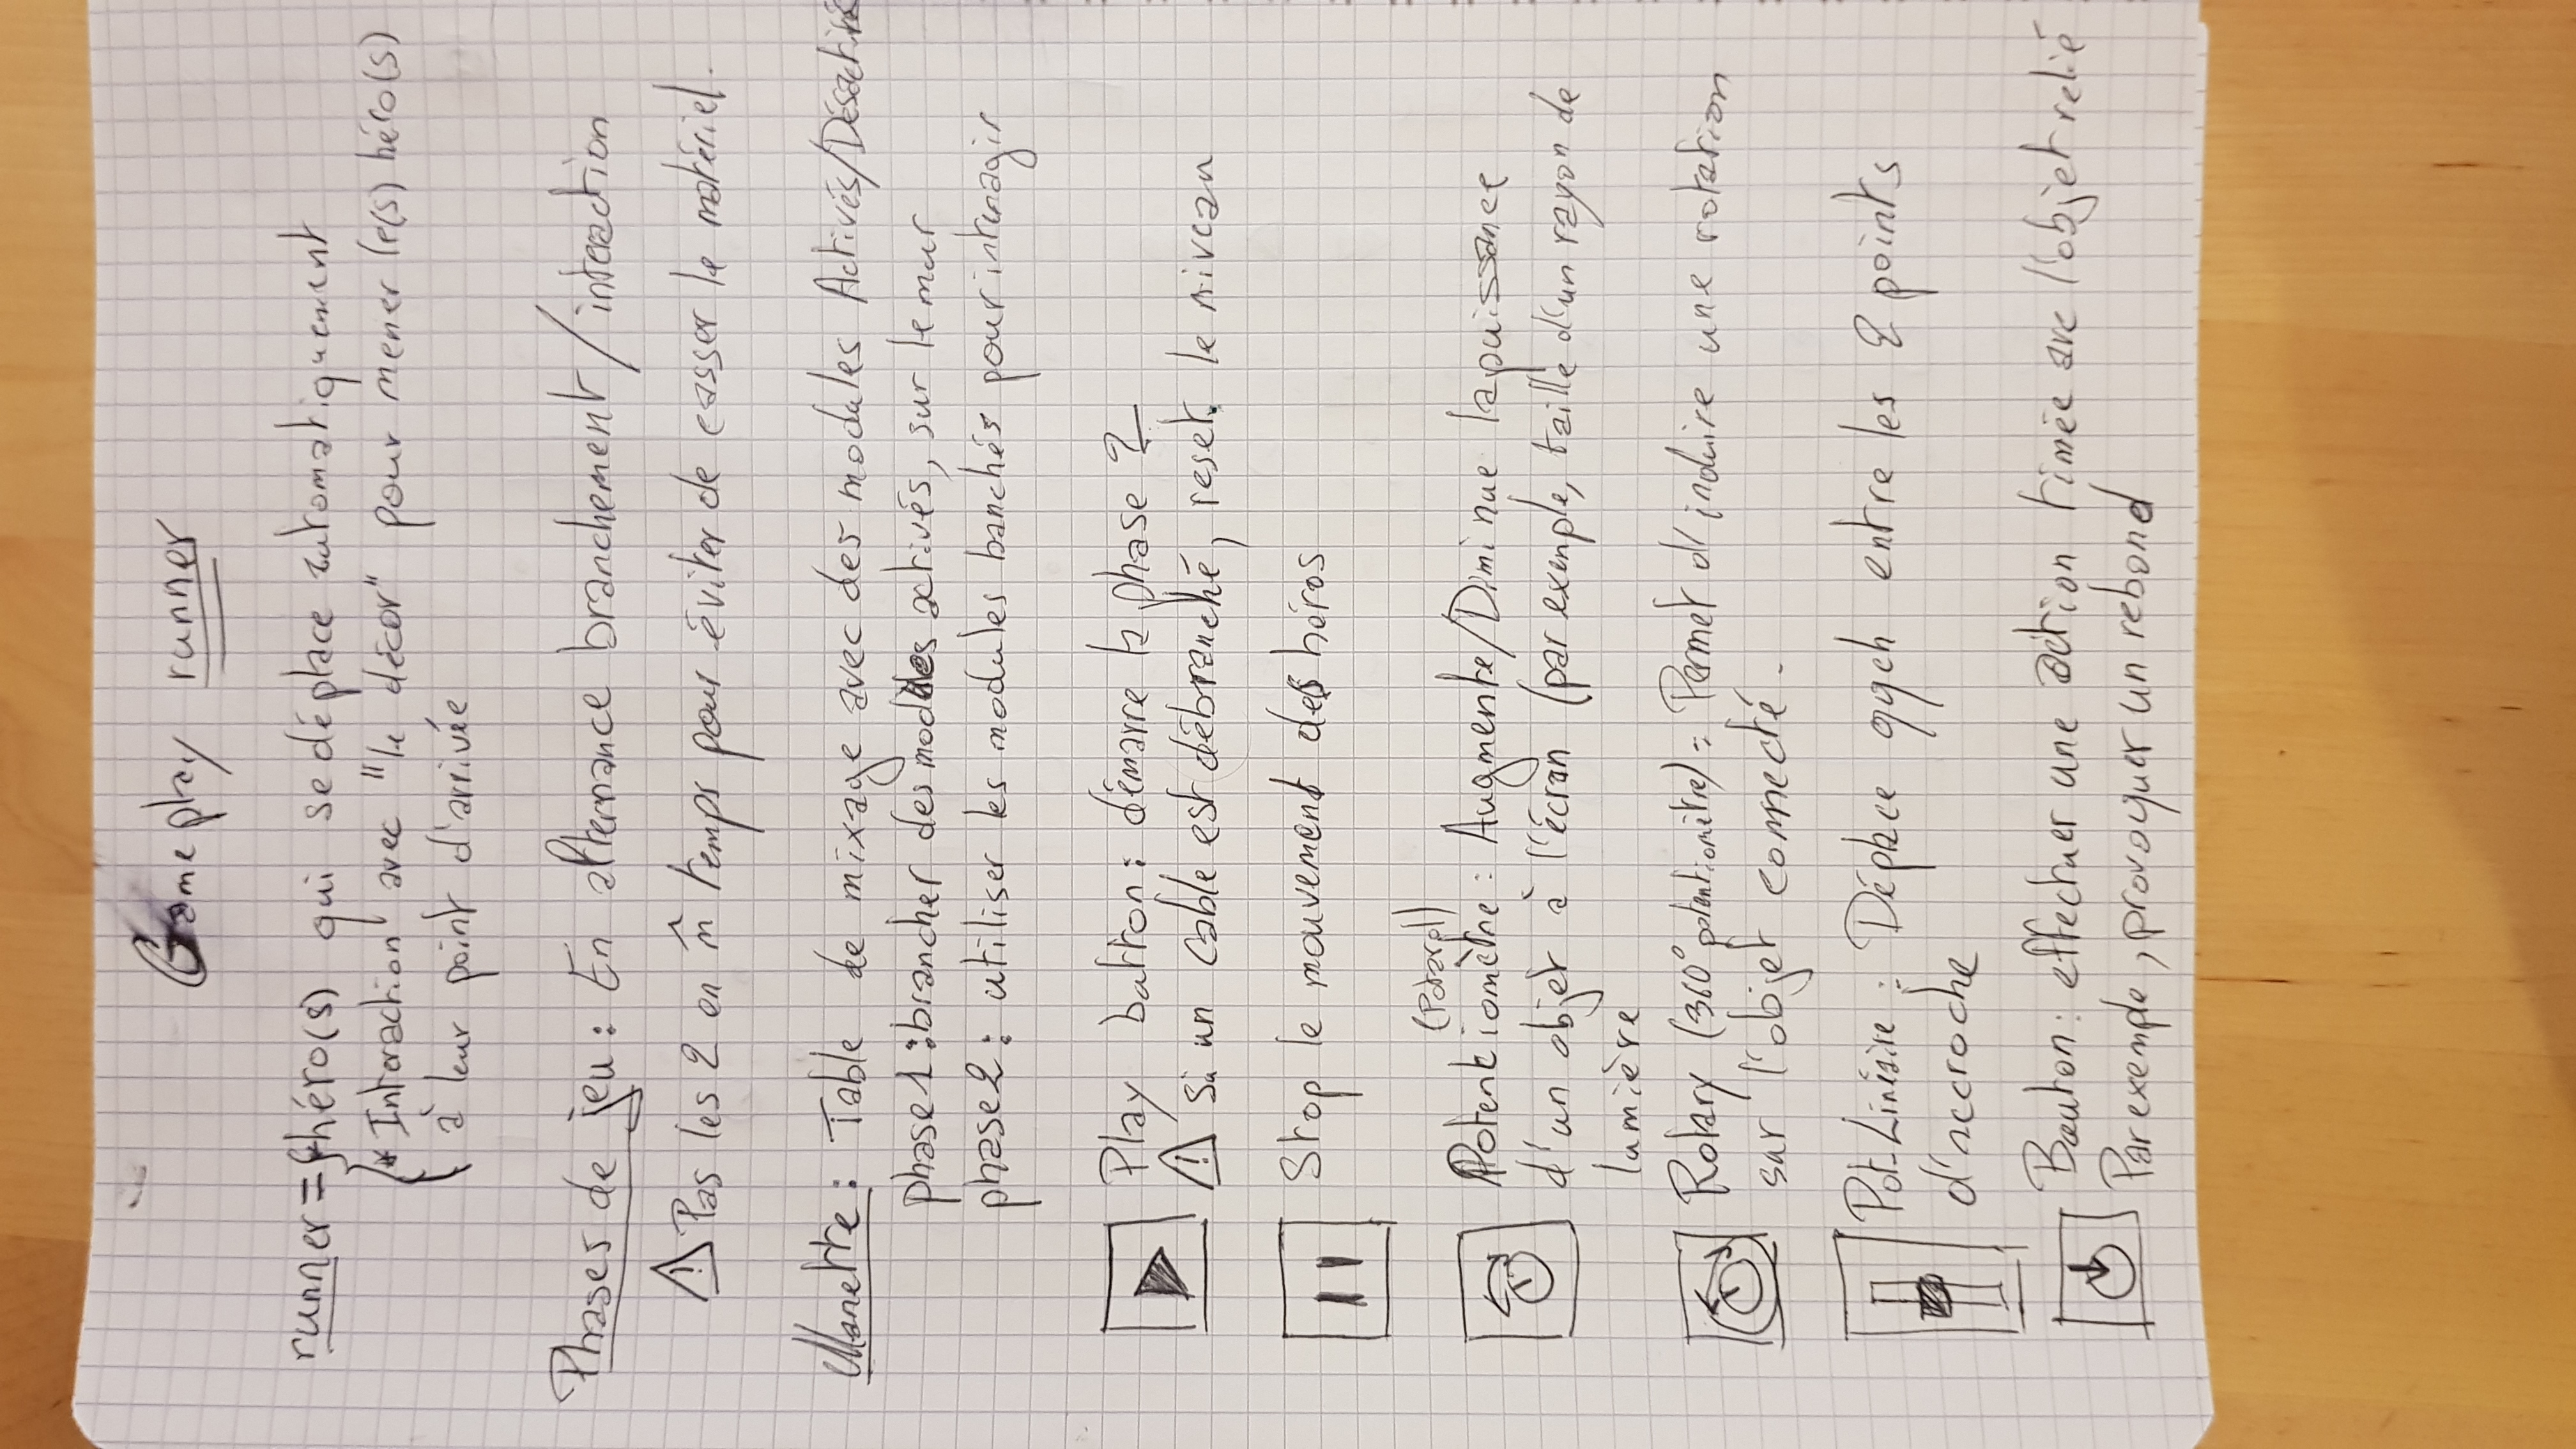 Gameplay runner
runner = { * héro(s) qui se déplace automatiquement
* Interaction avec "le décor" pour mener le(s) héro(s)
à leur point d'arrivée
Phases de jeu : En alternance branchement / interaction
⚠ Pas les 2 en m̂ temps pour éviter de casser le matériel.
Manette : Table de mixage avec des modules Activés/Désactivés
phase 1 : brancher des modules activés, sur le mur
phase 2 : utiliser les modules banchés pour interagir
Play button : démarre la phase 2
⚠ Si un cable est débranché, reset le niveau
Stop le mouvement des héros
Potentiomètre : Augmente/Diminue la puissance
d'un objet à l'écran (par exemple, taille d'un rayon de
lumière
Rotary (360° potentiomètre) = Permet d'induire une rotation
sur l'objet connecté.
Pot-Linéaire : Déplace qqch entre les 2 points
d'accroche
Bouton : effectuer une action timée avc l'objet relié
Par exemple, provoquer un rebond